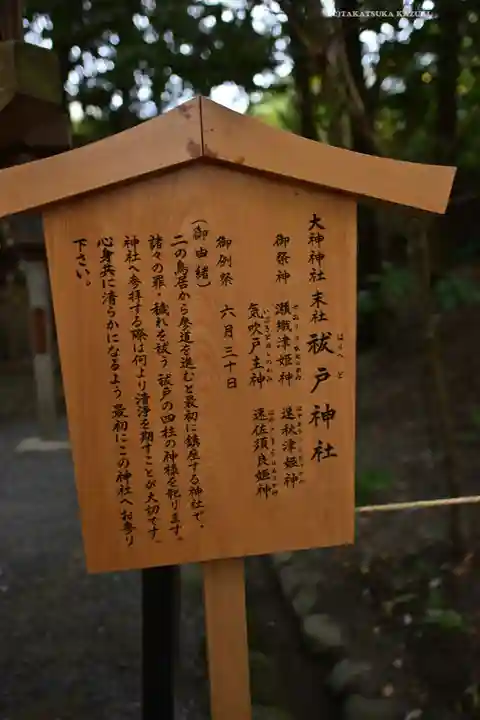 ©TAKATSUKA KAZUKI
大神神社 末社 祓戸神社
はらへど
御祭神 瀬織津姫神 速秋津姫神
気吹戸主神 速佐須良姫神
御例祭 六月三十日
(御由緒)
二の鳥居から参道を進むと最初に鎮座する神社で、
諸々の罪・穢れを祓う 祓戸の四柱の神様を祀ります。
神社へ参拝する際は何より清浄を期すことが大切です。
心身共に清らかになるよう 最初にこの神社へお参り
下さい。